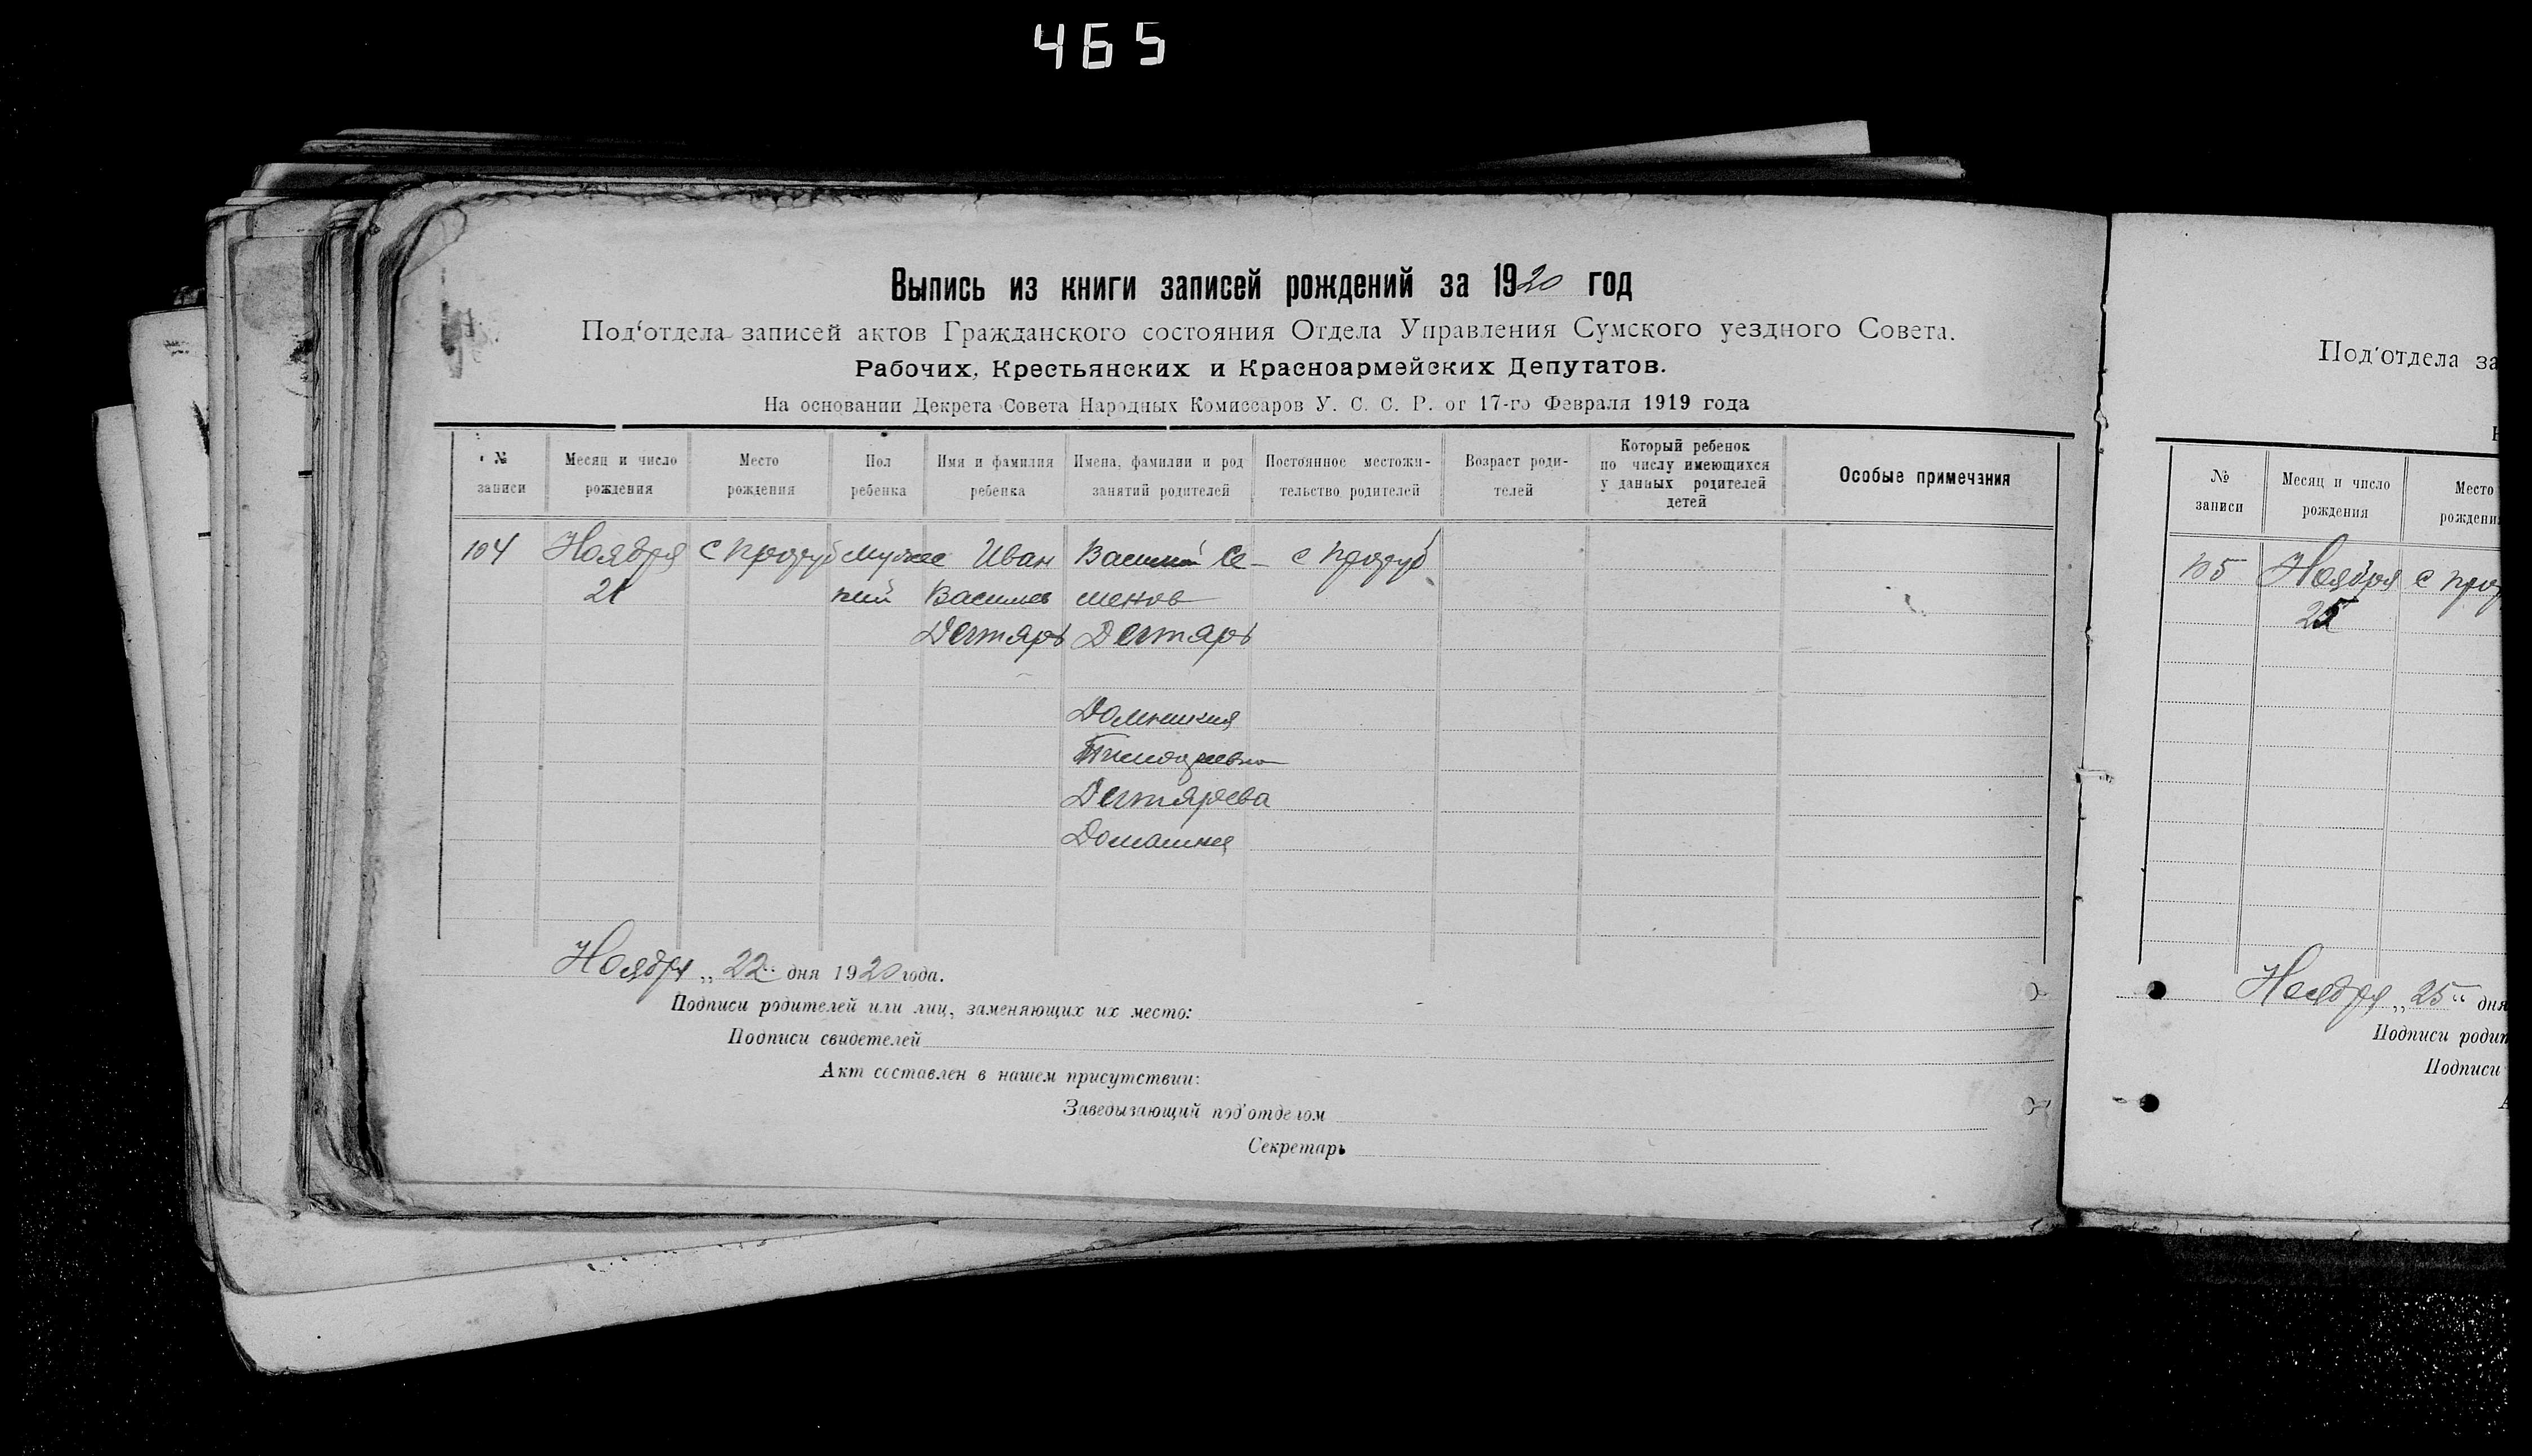 465
Выпись из книги записей рождений за 1920 год
Под‘отдела записей актов Гражданского состояния Отдела Управления Сумского уездного Совета.
Рабочих, Крестьянских и Красноармейских Депутатов.
На основании Декрета Совета Народных Комиссаров У. С. С. Р. от 17-го Февраля 1919 года
№ записи
Месяц и число рождения
Место рождения
Пол ребенка
Имя и фамилия ребенка
Имена, фамилии и род занятий родителей
Постоянное местожительство родителей
Возраст родителей
Который ребенок по числу имеющихся у данных родителей детей
Особые примечания
104 Ноября с Мужес Иван Василий Се- с
21 кий Васильев менов
Дегтярь Дегтярь
Домникия
Тимофеевна
Дегтярева
Домашняя
Ноября „22“ дня 1920 года.
Подписи родителей или лиц, заменяющих их место:
Подписи свидетелей
Акт составлен в нашем присутствии:
Заведызающий под'отделом
Секретарь
Под'отдела за
№ записи
Месяц и число рождения
Место рождени
105 Ноября с
25
Ноября „25“ дня
Подписи родит
Подписи